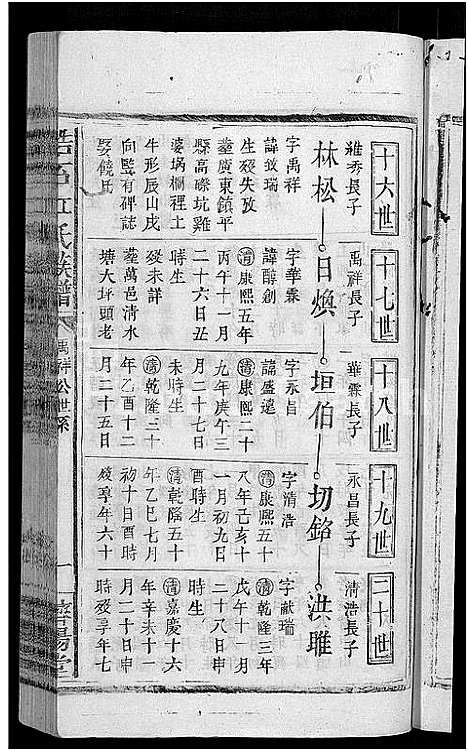 十六世
維秀長子
林松
字禹祥
諱效瑞
生歿失攷
塟廣東鎮平
縣高磜坑雞
婆塌欄裡土
牛形辰山戌
向竪有碑誌
娶饒氏
十七世
禹祥長子
日煥
字華霖
諱醇創
清康熙五年
丙午十一月
二十六日丑
時生
歿未詳
塟萬邑清水
塘大坪頭老
十八世
華霖長子
垣伯
字永昌
諱盛遠
清康熙二十
九年庚午三
月二十七日
未時生
清乾隆三十
年乙酉十二
月二十五日
十九世
永昌長子
切銘
字清浩
清康熙五十
八年己亥十
一月初九日
酉時生
清乾隆五十
年乙巳七月
初十日酉時
歿享年六十
二十世
清浩長子
洪雎
字献瑞
清乾隆三年
戊午十一月
二十八日申
時生
清嘉慶十六
年辛未十一
月二十日申
時歿享年七
氏族譜
禹祥公世系
一
濟陽堂